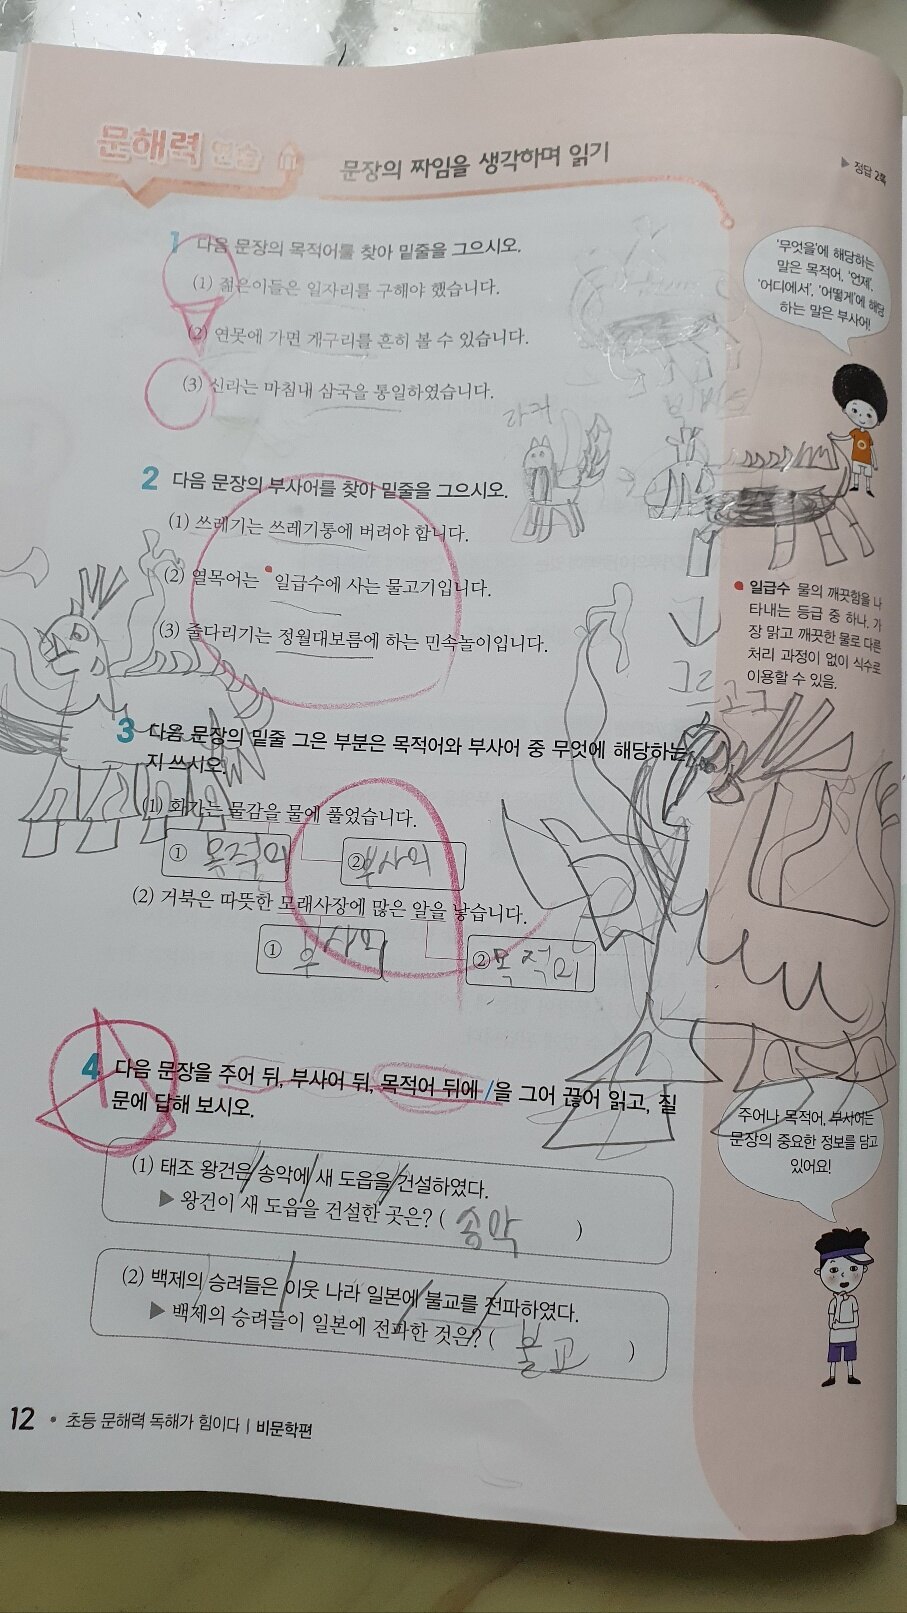 문해력 연습
문장의 짜임을 생각하며 읽기
▶ 정답 2쪽
1 다음 문장의 목적어를 찾아 밑줄을 그으시오.
(1) 젊은이들은 일자리를 구해야 했습니다.
(2) 연못에 가면 개구리를 흔히 볼 수 있습니다.
(3) 신라는 마침내 삼국을 통일하였습니다.
'무엇을'에 해당하는
말은 목적어, '언제',
'어디에서', '어떻게'에 해당
하는 말은 부사어!
2 다음 문장의 부사어를 찾아 밑줄을 그으시오.
(1) 쓰레기는 쓰레기통에 버려야 합니다.
(2) 열목어는 일급수에 사는 물고기입니다.
(3) 줄다리기는 정월대보름에 하는 민속놀이입니다.
일급수 물의 깨끗함을 나
타내는 등급 중 하나. 가
장 맑고 깨끗한 물로 다른
처리 과정이 없이 식수로
이용할 수 있음.
3 다음 문장의 밑줄 그은 부분은 목적어와 부사어 중 무엇에 해당하는
지 쓰시오.
(1) 화가는 물감을 물에 풀었습니다.
① 목적어 ② 부사어
(2) 거북은 따뜻한 모래사장에 많은 알을 낳습니다.
① 부사어 ② 목적어
4 다음 문장을 주어 뒤, 부사어 뒤, 목적어 뒤에 /을 그어 끊어 읽고, 질
문에 답해 보시오.
(1) 태조 왕건은/송악에/새 도읍을/건설하였다.
▶ 왕건이 새 도읍을 건설한 곳은? ( 송악 )
(2) 백제의 승려들은/이웃 나라 일본에/불교를/전파하였다.
▶ 백제의 승려들이 일본에 전파한 것은? ( 불교 )
주어나 목적어, 부사어는
문장의 중요한 정보를 담고
있어요!
12 • 초등 문해력 독해가 힘이다 | 비문학편